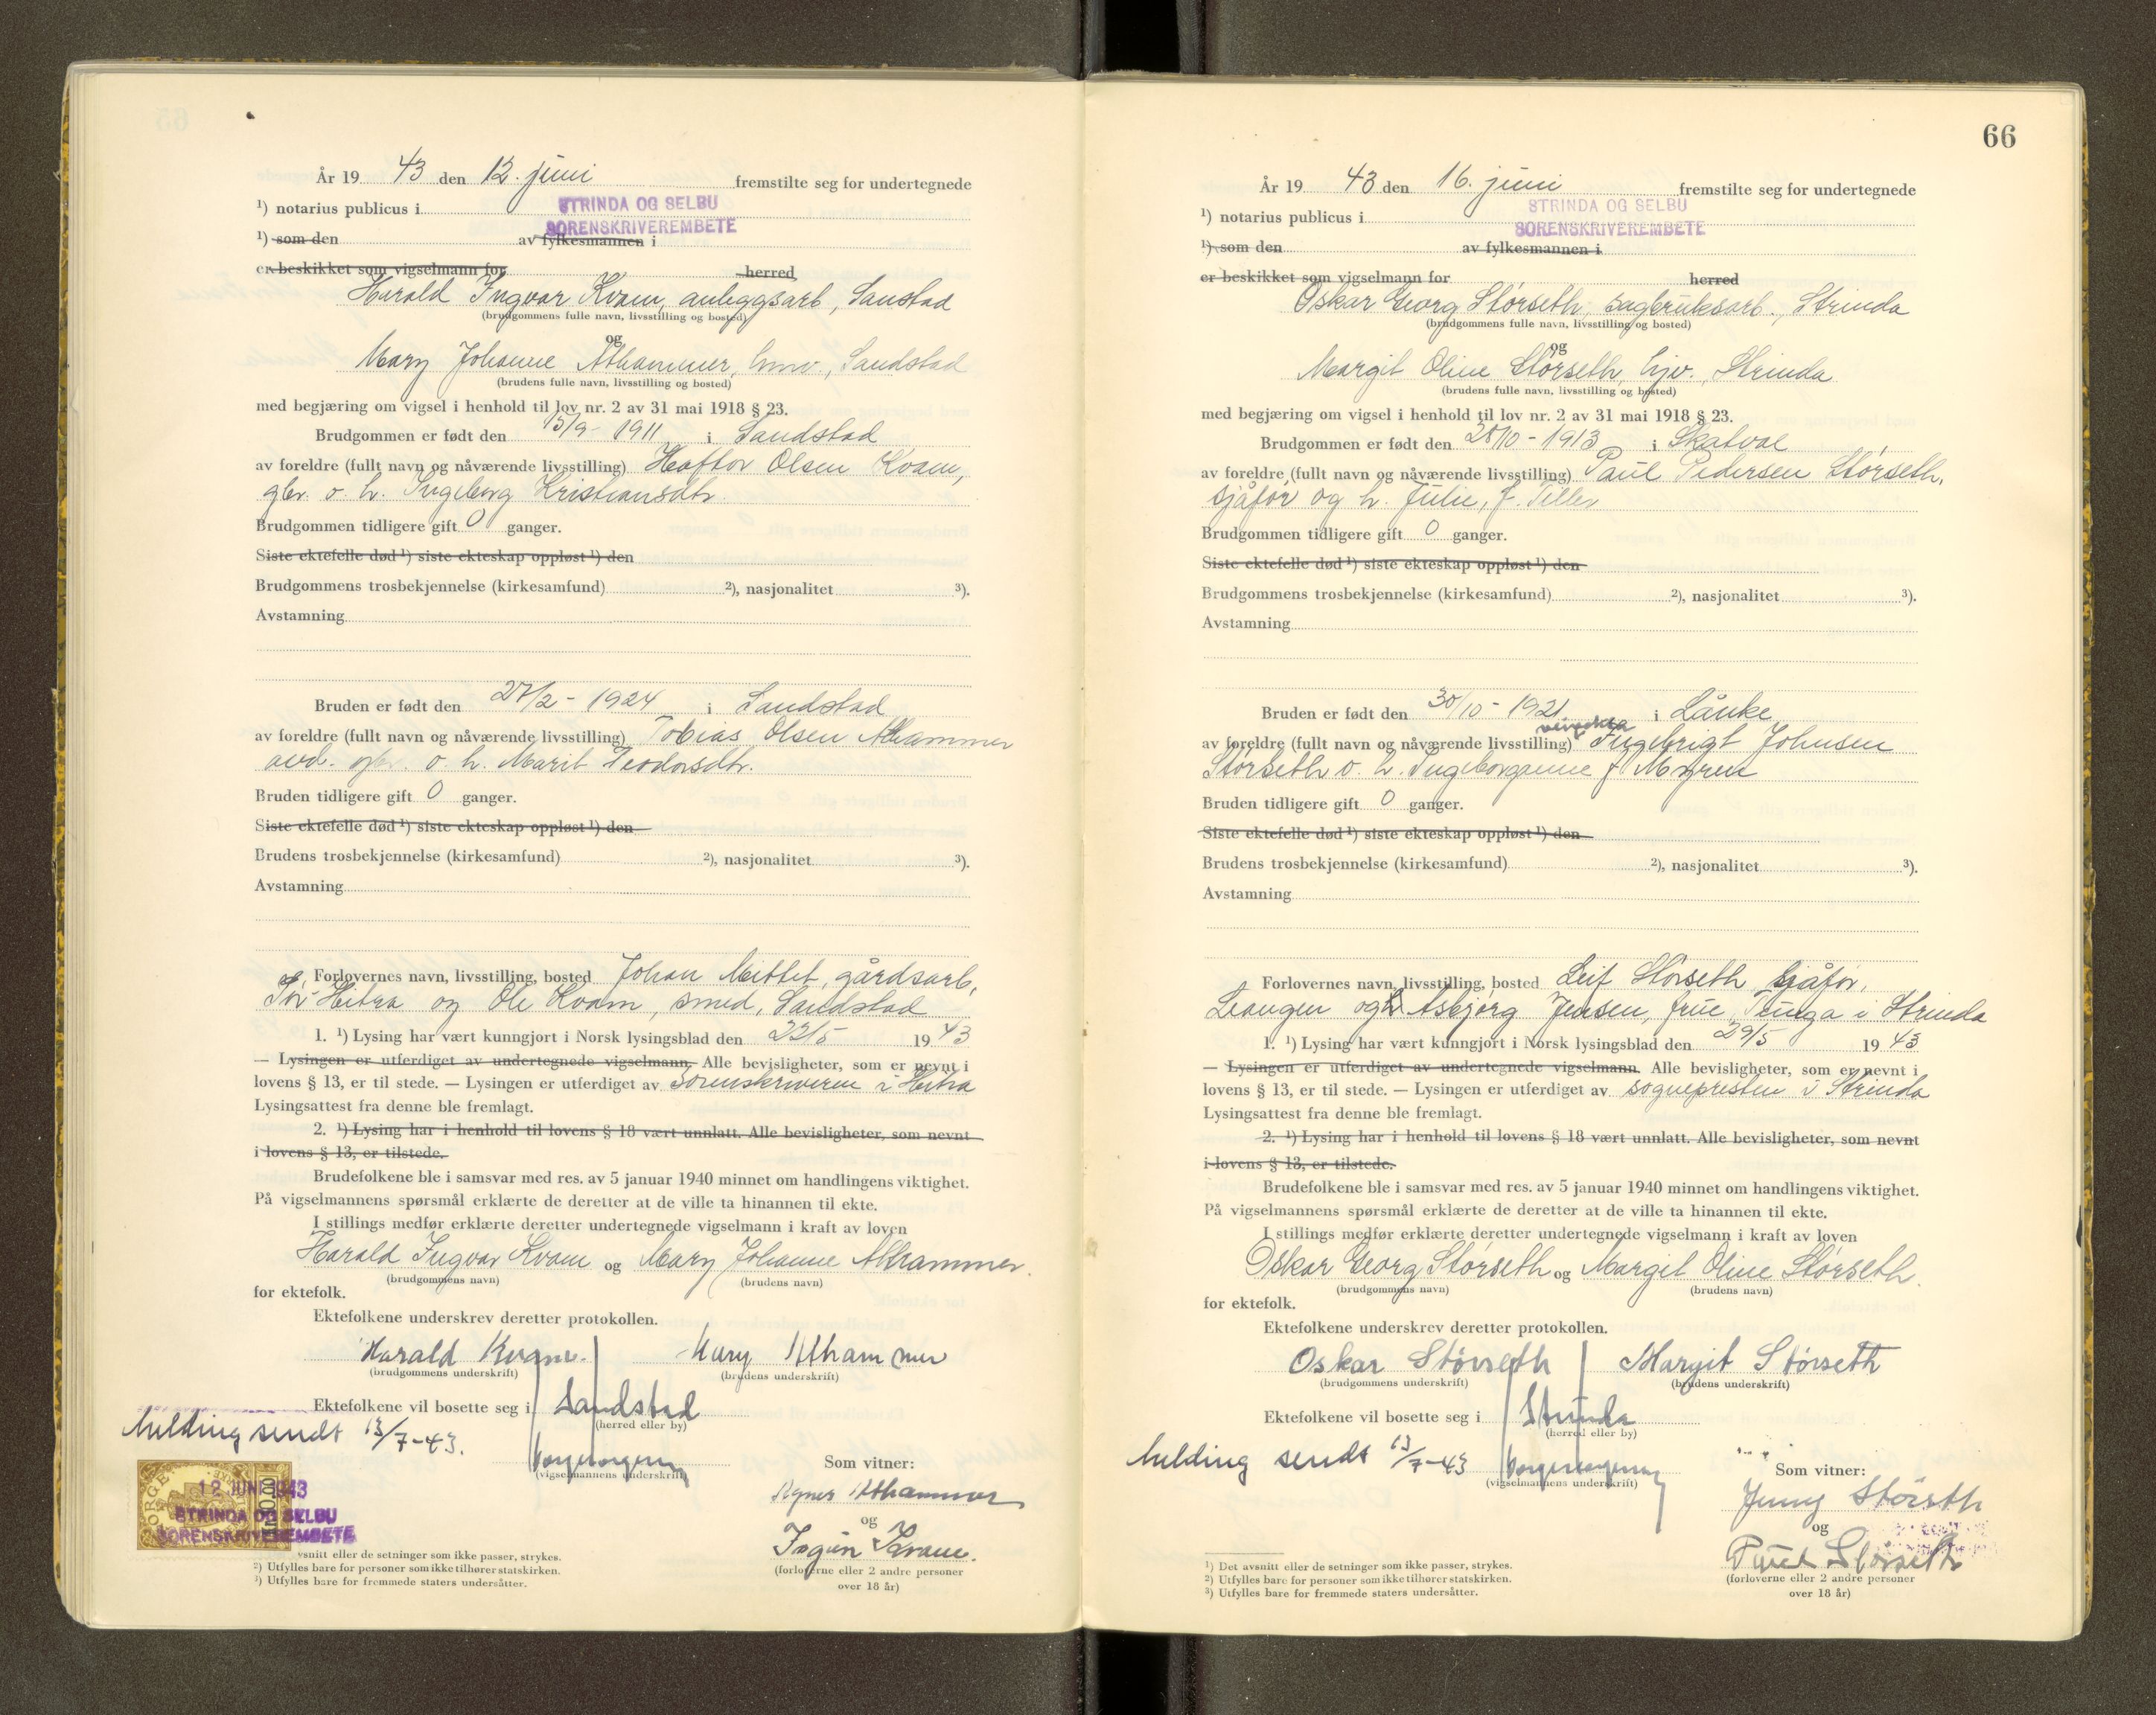 År 19 43 den 12. juni fremstilte seg for undertegnede
¹) notarius publicus i STRINDA OG SELBU
SORENSKRIVEREMBETE
¹) som den av fylkesmannen i
er beskikket som vigselmann for herred
Harald Ingvar Kvam, anleggsarb, Sanstad
(brudgommens fulle navn, livsstilling og bosted)
og
Mary Johanne Althammer, hmv., Sandstad
(brudens fulle navn, livsstilling og bosted)
med begjæring om vigsel i henhold til lov nr. 2 av 31 mai 1918 § 23.
Brudgommen er født den 15/9 - 1911 i Sandstad
av foreldre (fullt navn og nåværende livsstilling) Haftor Olsen Kvam,
gbr. o. h. Ingeborg Kristiansdtr.
Brudgommen tidligere gift 0 ganger.
Siste ektefelle død ¹) siste ekteskap oppløst ¹) den
Brudgommens trosbekjennelse (kirkesamfund) ²), nasjonalitet ³).
Avstamning
Bruden er født den 27/2 - 1924 i Sandstad
av foreldre (fullt navn og nåværende livsstilling) Tobias Olsen Althammer
avd. gbr. o. h. Marit Teodorsdtr.
Bruden tidligere gift 0 ganger.
Siste ektefelle død ¹) siste ekteskap oppløst ¹) den
Brudens trosbekjennelse (kirkesamfund) ²), nasjonalitet ³).
Avstamning
Forlovernes navn, livsstilling, bosted Johan Mittet, gårdsarb,
Sør-Hitra og Ole Kvam, smed, Sandstad
1. ¹) Lysing har vært kunngjort i Norsk lysingsblad den 22/5 19 43
— Lysingen er utferdiget av undertegnede vigselmann. Alle bevisligheter, som er nevnt i
lovens § 13, er til stede. — Lysingen er utferdiget av Sorenskriveren i Hitra
Lysingsattest fra denne ble fremlagt.
2. ¹) Lysing har i henhold til lovens § 18 vært unnlatt. Alle bevisligheter, som nevnt
i lovens § 13, er tilstede.
Brudefolkene ble i samsvar med res. av 5 januar 1940 minnet om handlingens viktighet.
På vigselmannens spørsmål erklærte de deretter at de ville ta hinannen til ekte.
I stillings medfør erklærte deretter undertegnede vigselmann i kraft av loven
Harald Ingvar Kvam og Mary Johanne Althammer.
(brudgommens navn) (brudens navn)
for ektefolk.
Ektefolkene underskrev deretter protokollen.
Harald Kvam. Mary Althammer
(brudgommens underskrift) (brudens underskrift)
Ektefolkene vil bosette seg i Sandstad
(herred eller by)
Melding sendt 13/7-43.
(vigselmannens underskrift)
Som vitner:
Agnes Althammer
og
Ingun Kvam.
(forloverne eller 2 andre personer
over 18 år)
NORGE
12 JUNI 1943
STRINDA OG SELBU
SORENSKRIVEREMBETE
avsnitt eller de setninger som ikke passer, strykes.
²) Utfylles bare for personer som ikke tilhører statskirken.
³) Utfylles bare for fremmede staters undersåtter.
66
År 19 43 den 16. juni fremstilte seg for undertegnede
¹) notarius publicus i STRINDA OG SELBU
SORENSKRIVEREMBETE
¹) som den av fylkesmannen i
er beskikket som vigselmann for herred
Oskar Georg Størseth, sagbruksarb., Strinda
(brudgommens fulle navn, livsstilling og bosted)
og
Margit Oline Størseth, hjv., Strinda
(brudens fulle navn, livsstilling og bosted)
med begjæring om vigsel i henhold til lov nr. 2 av 31 mai 1918 § 23.
Brudgommen er født den 28/10 - 1913 i Skatval
av foreldre (fullt navn og nåværende livsstilling) Paul Pedersen Størseth,
sjåfør og h. Julie, f. Tiller
Brudgommen tidligere gift 0 ganger.
Siste ektefelle død ¹) siste ekteskap oppløst ¹) den
Brudgommens trosbekjennelse (kirkesamfund) ²), nasjonalitet ³).
Avstamning
Bruden er født den 30/10 - 1921 i Lånke
av foreldre (fullt navn og nåværende livsstilling) Ingebrigt Johnsen
Størseth o. h. Ingeborganne f. Myren
Bruden tidligere gift 0 ganger.
Siste ektefelle død ¹) siste ekteskap oppløst ¹) den
Brudens trosbekjennelse (kirkesamfund) ²), nasjonalitet ³).
Avstamning
Forlovernes navn, livsstilling, bosted Leif Størseth, sjåfør,
Leangen og Asbjørg Jensen, frue, Tunga i Strinda
1. ¹) Lysing har vært kunngjort i Norsk lysingsblad den 29/5 19 43
— Lysingen er utferdiget av undertegnede vigselmann. Alle bevisligheter, som er nevnt i
lovens § 13, er til stede. — Lysingen er utferdiget av sognepresten i Strinda
Lysingsattest fra denne ble fremlagt.
2. ¹) Lysing har i henhold til lovens § 18 vært unnlatt. Alle bevisligheter, som nevnt
i lovens § 13, er tilstede.
Brudefolkene ble i samsvar med res. av 5 januar 1940 minnet om handlingens viktighet.
På vigselmannens spørsmål erklærte de deretter at de ville ta hinannen til ekte.
I stillings medfør erklærte deretter undertegnede vigselmann i kraft av loven
Oskar Georg Størseth og Margit Oline Størseth.
(brudgommens navn) (brudens navn)
for ektefolk.
Ektefolkene underskrev deretter protokollen.
Oskar Størseth Margit Størseth
(brudgommens underskrift) (brudens underskrift)
Ektefolkene vil bosette seg i Strinda
(herred eller by)
Melding sendt 13/7-43
(vigselmannens underskrift)
Som vitner:
Jenny Størseth
og
Paul Størseth
(forloverne eller 2 andre personer
over 18 år)
¹) Det avsnitt eller de setninger som ikke passer, strykes.
²) Utfylles bare for personer som ikke tilhører statskirken.
³) Utfylles bare for fremmede staters undersåtter.